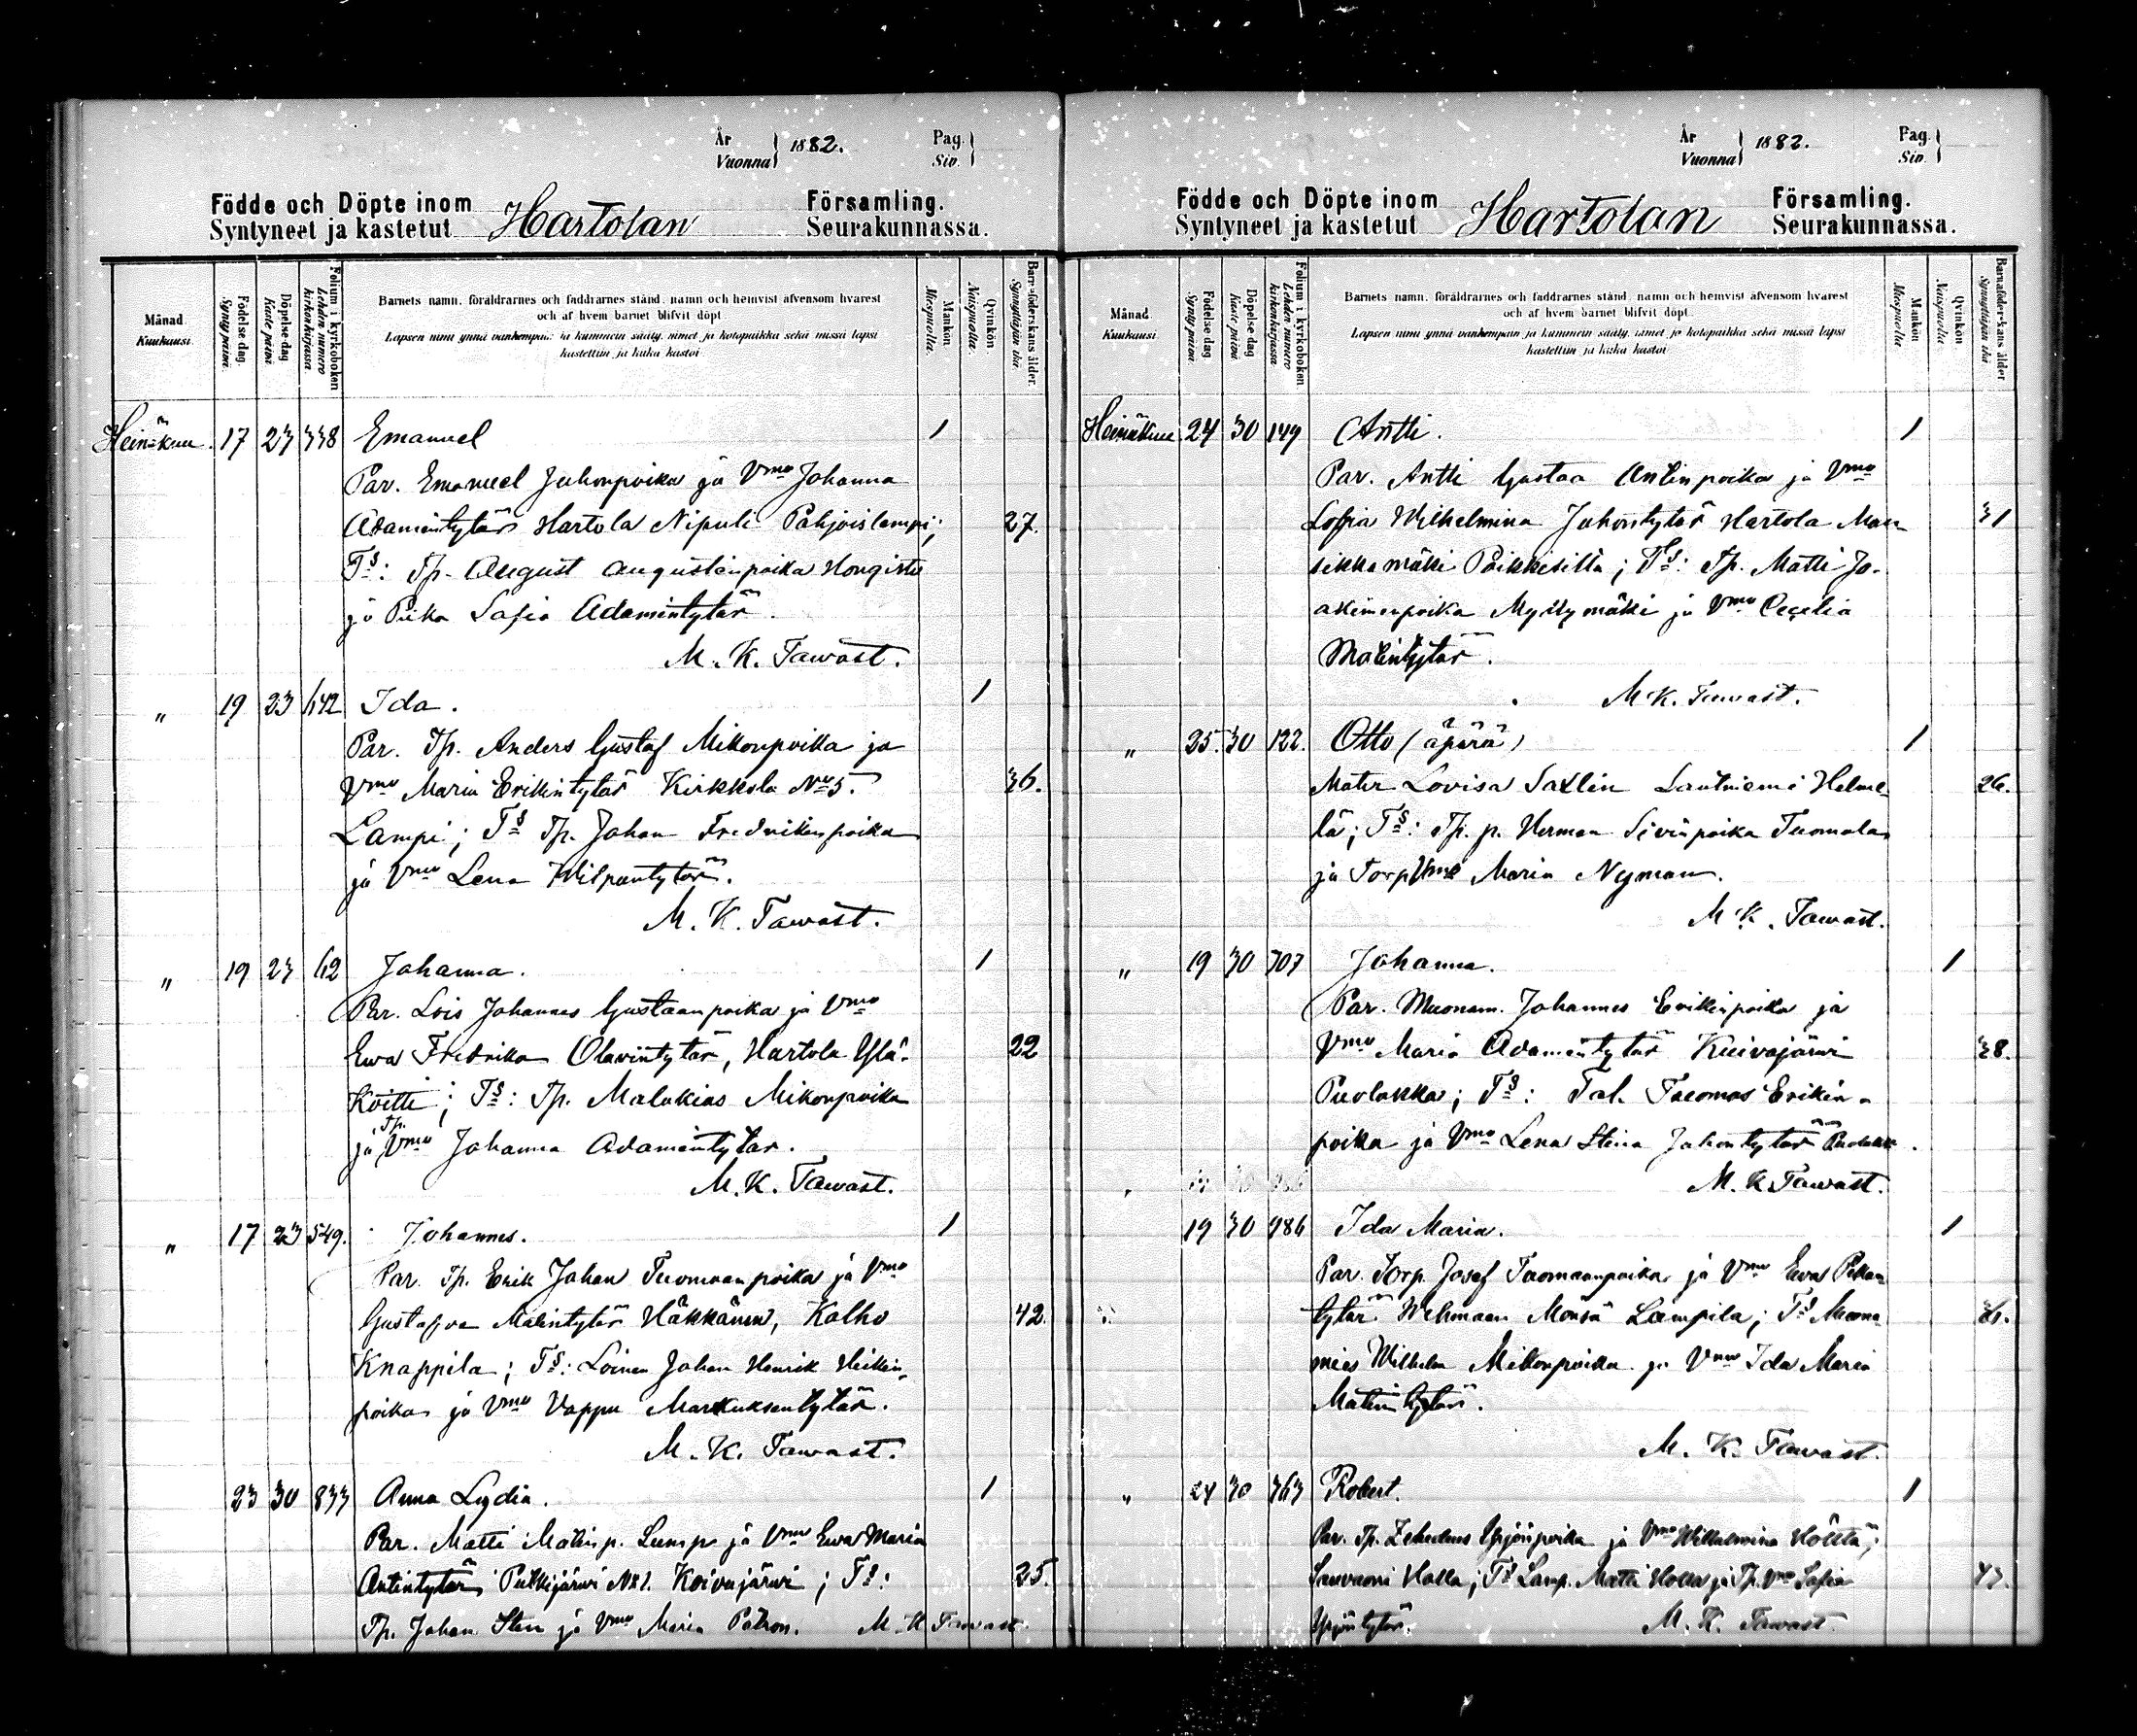 År
Vuonna } 1882.
Pag.
Siv. }
Födde och Döpte inom Hartolan Församling.
Syntyneet ja kastetut Seurakunnassa.
Månad
Kuukausi.
Födelse dag.
Synty päivä.
Döpelse dag
Kaste päivä
Folium i kyrkoboken
Lehden numero kirkonkirjassa
Barnets namn, föräldrarnes och faddrarnes stånd, namn och hemvist äfvensom hvarest
och af hvem barnet blifvit döpt.
Lapsen nimi ynnä vanhempain ja kummein sääty, nimet ja kotopaikka sekä missä lapsi
kastettiin ja kuka kastoi
Mankön
Miespuolia.
Qvinkön
Naispuolia.
Barnaföderskans ålder.
Synnyttäjän ikä.
Heinäkuu. 17 23 338 Emanuel 1
Par. Emanuel Juhonpoika ja Vmo Johanna
Adamintytär Hartola Nipuli Pohjoislampi; 27.
Ts: Tp. August Augustinpoika Hongisto
ja Piika Sofia Adamintytär.
M. K. Tawast.
" 19 23 642 Ida. 1
Par. Tp. Anders Gustaf Mikonpoika ja
Vmo Maria Erikintytär Kirkkola No 5. 36.
Lampi; Ts Tp. Johan Fredrikinpoika
ja Vmo Lena Wilpuntytär.
M. K. Tawast.
" 19 23 62 Johanna. 1
Par. Lois Johannes Gustaanpoika ja Vmo
Ewa Fredrika Olavintytär, Hartola Ylä- 22
Koitti; Ts: Tp. Malakias Mikonpoika
ja Tp. Vmo Johanna Adamintytär.
M. K. Tawast.
" 17 23 549. Johannes. 1
Par. Tp. Erik Johan Tuomaanpoika ja Vmo
Gustafva Matintytär Häkkänen, Kalho 42.
Knappila; Ts: Loinen Johan Henrik Heikin-
poika ja Vmo Vappu Markuksentytär.
M. K. Tawast.
23 30 833 Anna Lydia. 1
Par. Matti Matinp. Lump ja Vmo Ewa Maria
Antintytär Putkijärwi No 1. Koivujärwi; Ts: 25.
Tp. Johan Sten ja Vmo Maria Patron. M. K. Tawast.
År
Vuonna } 1882.
Pag.
Siv. }
Födde och Döpte inom Hartolan Församling.
Syntyneet ja kastetut Seurakunnassa.
Månad
Kuukausi.
Födelse dag
Synty päivä.
Döpelse dag
Kaste päivä
Folium i kyrkoboken
Lehden numero kirkonkirjassa
Barnets namn, föräldrarnes och faddrarnes stånd, namn och hemvist äfvensom hvarest
och af hvem barnet blifvit döpt.
Lapsen nimi ynnä vanhempain ja kummein sääty, nimet ja kotopaikka sekä missä lapsi
kastettiin ja kuka kastoi
Mankön
Miespuolia
Qvinkön
Naispuolia
Barnaföderskans ålder
Synnyttäjän ikä
Heinäkuu 24 30 149 Antti. 1
Par. Antti Gustaa Antinpoika ja Vmo
Sofia Wilhelmina Juhontytär Hartola Man 31
sikkamäki Poikkisilta; Ts: Tp. Matti Jo-
akiminpoika Myllymäki ja Vmo Cecelia
Matintytär.
M. K. Tawast.
" 25. 30 122. Otto (äpärä) 1
Mater Lovisa Saxlin Lautniemi Helme- 26.
lä; Ts: Tp. p. Herman Sivinpoika Tuomala
ja Torp Vmo Maria Nyman.
M. K. Tawast.
" 19 30 707 Johanna. 1
Par. Muonam. Johannes Erikinpoika ja
Vmo Maria Adamintytär Kuivajärwi 38.
Puolakka; Ts: Tal. Tuomas Erikin-
poika ja Vmo Lena Stina Juhontytär Puolakka.
M. K. Tawast.
19 30 986 Ida Maria. 1
Par. Torp. Josef Tuomaanpoika ja Vmo Ewa Pekan-
tytär Wehmaan Monsä Lampila; Ts Muona-
mies Wilhelm Mikonpoika ja Vmo Ida Maria
Matintytär.
M. K. Tawast.
" 24 30 363 Robert. 1
Par. Tp. Zekeus Yrjönpoika ja Vmo Wilhelmina Höltta;
Halla; Ts Lamp. Matti Holla ja Tp. Vmo Sofia 43.
Yrjöntytär. M. K. Tawast.